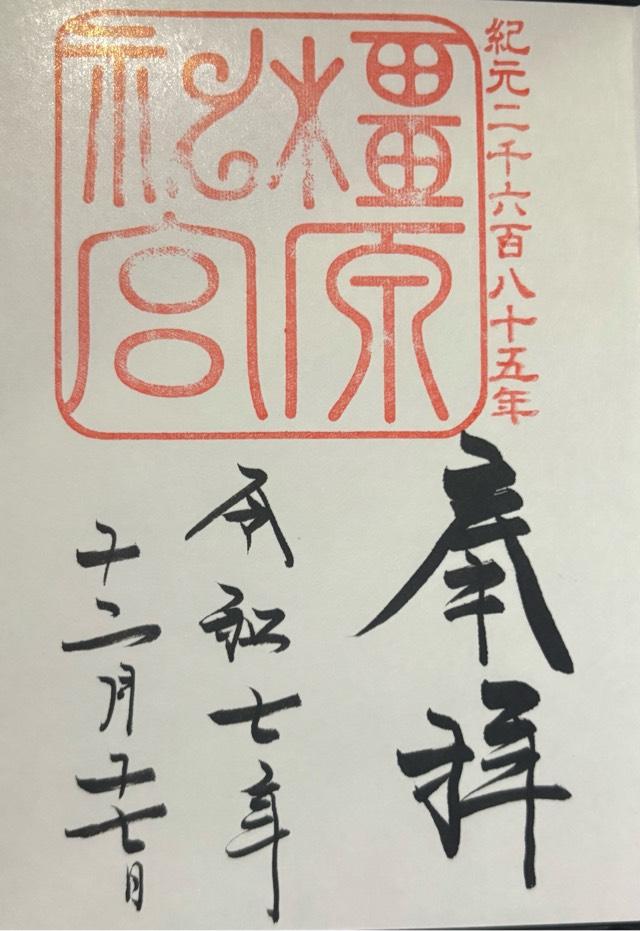 紀元二千六百八十五年
橿原
神宮
奉拝
令和七年
十二月十七日